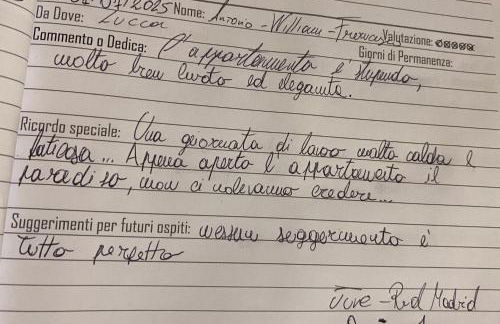 07/2025 Nome: Antonio - William - Francesco
Da Dove: Lucca Valutazione:
Commento o Dedica: L'appartamento è stupendo, Giorni di Permanenza:
molto ben curato ed elegante.
Ricordo speciale: Una giornata di lavoro molto calda e
faticosa... Appena aperto l'appartamento il
paradiso, non ci volevamo credere...
Suggerimenti per futuri ospiti: nessun suggerimento è
tutto perfetto
Juve - Real Madrid